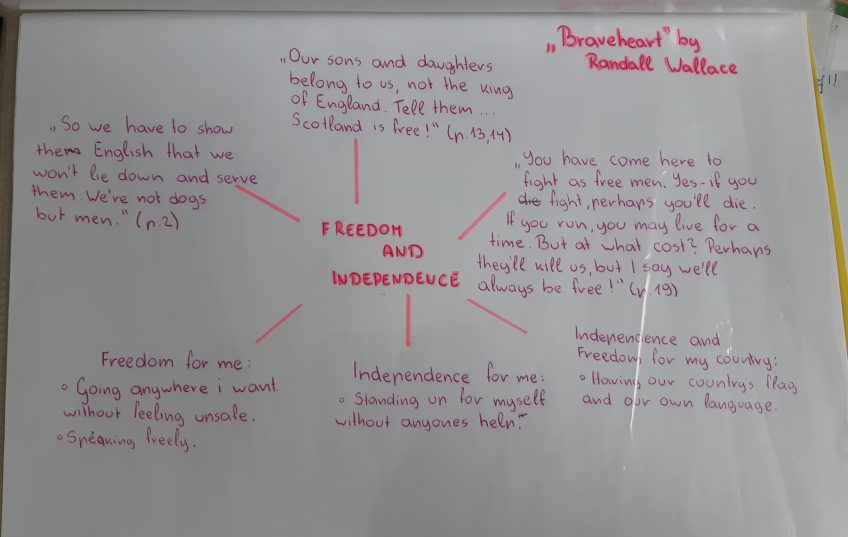 „Braveheart" by
Randall Wallace
„Our sons and daughters
belong to us, not the king
of England. Tell them ...
Scotland is free!" (p.13,14)
„So we have to show
them English that we
won't lie down and serve
them. We're not dogs
but men." (p.2)
„You have come here to
fight as free men. Yes-if you
die fight, perhaps you'll die.
If you run, you may live for a
time. But at what cost? Perhaps
they'll kill us, but I say we'll
always be free!" (p.19)
FREEDOM
AND
INDEPENDENCE
Freedom for me:
• Going anywhere i want
without feeling unsafe.
• Speaking freely.
Independence for me:
• Standing up for myself
without anyones help."
Independence and
Freedom for my country:
• Having our country's flag
and our own language.